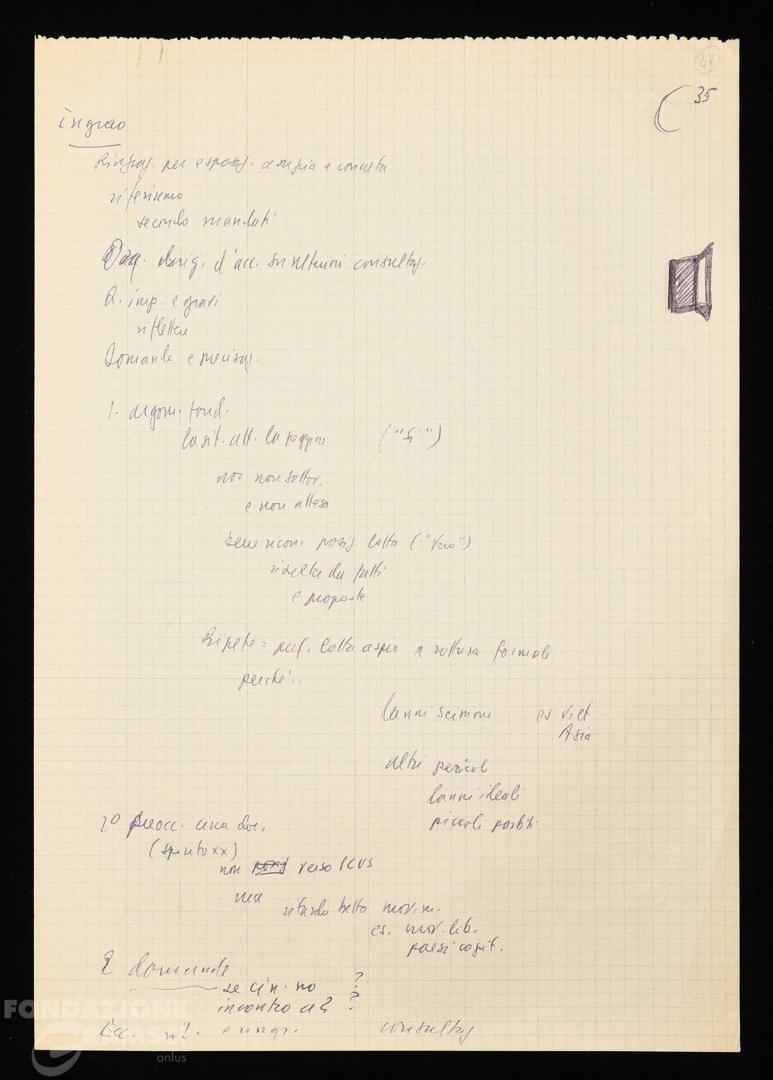 42
35
Ingrao
Ringraz. per esposiz. ampia e concreta
riferiremo
secondo mandati
d'acc. su ulteriori consultaz.
Q. imp. e gravi
riflettere
Domande e precisaz.
1. argom. fond.
la sit. att. la peggiore ("sì")
noi non sottov.
e non attesa
bene ricon. posiz lotta ("vero")
risulta da fatti
e proposte
Ripete: pref. lotta aspra a rottura formale
perché..
danni scissione es Viet
Asia
altri pericoli
danni ideali
piccoli partiti
2º preocc. una doc.
(spunto xx)
non verso PCUS
ma
ritardo tutto movim.
es. mov. lib.
paesi capit.
2 domande
se cin. no ?
incontro a 2 ?
consultaz
FONDAZIONE
GRAMSCI
onlus